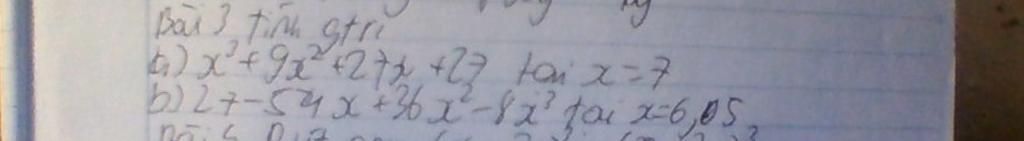 Bài 3 tính gtrị
a) x³ + 9x² + 27x + 27 tại x = 7
b) 27 - 54x + 36x² - 8x³ tại x = 6,05